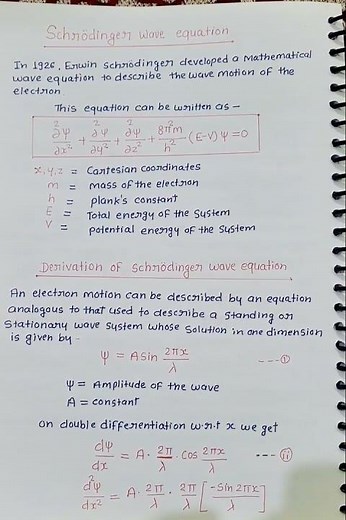 Schrödinger wave equation
In 1926, Erwin Schrödinger developed a Mathematical
wave equation to describe the wave motion of the
electron
This equation can be written as –
∂²ψ/∂x² + ∂²ψ/∂y² + ∂²ψ/∂z² + 8π²m/h² (E-V) ψ = 0
x,y,z = Cartesian coordinates
m = mass of the electron
h = plank's constant
E = Total energy of the system
V = potential energy of the system
Derivation of Schrödinger wave equation
An electron motion can be described by an equation
analogous to that used to describe a standing or
stationary wave system whose solution in one dimension
is given by -
ψ = A sin 2πx/λ ---①
ψ = Amplitude of the wave
A = constant
on double differentiation w.r.t x we get
dψ/dx = A · 2π/λ · cos 2πx/λ --- ⑪
d²ψ/dx² = A · 2π/λ · 2π/λ [-Sin 2πx/λ]